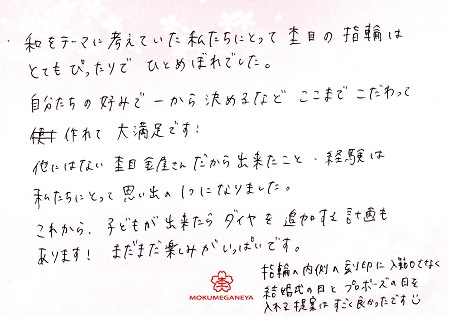 ・和をテーマに考えていた私たちにとって杢目の指輪は
とてもぴったりで ひとめぼれでした。
自分たちの好みで一から決めるなど ここまでこだわって
作れて 大満足です!
他にはない杢目金屋さんだから出来たこと・経験は
私たちにとって思い出の1つになりました。
これから、子どもが出来たらダイヤを追加する計画も
あります! まだまだ楽しみがいっぱいです。
指輪の内側の刻印に入籍日でなく
結婚式の日とプロポーズの日を
入れる提案はすごく良かったです
杢
MOKUMEGANEYA